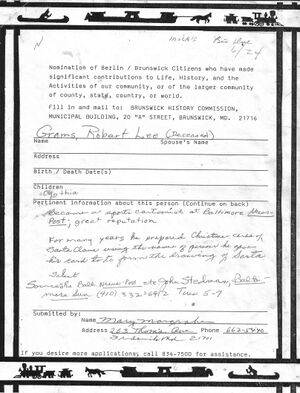 Nomination of Berlin / Brunswick Citizens who have made
significant contributions to Life, History, and the
Activities of our community, or of the larger community
of county, state, country, or world.
Fill in and mail to: BRUNSWICK HISTORY COMMISSION,
MUNICIPAL BUILDING, 20 "A" STREET, BRUNSWICK, MD. 21716
Grams, Robert Lee (Deceased)
Name Spouse's Name
Address
Birth / Death Date(s)
Children
Pertinent information about this person (Continue on back)
Became a sports cartoonist at Baltimore News-
Post; great reputation.
For many years he prepared Christmas cards of
Santa Claus using the name of person he gave
his card to to form the drawing of Santa
John Steadman, Balti-
more Sun (410) 332-6492 Tues 5-9
Submitted by:
Name Mary Margrabe
Address 263 Thomas Ave Phone 662-5470
Frederick Md 21701
If you desire more applications, call 834-7500 for assistance.